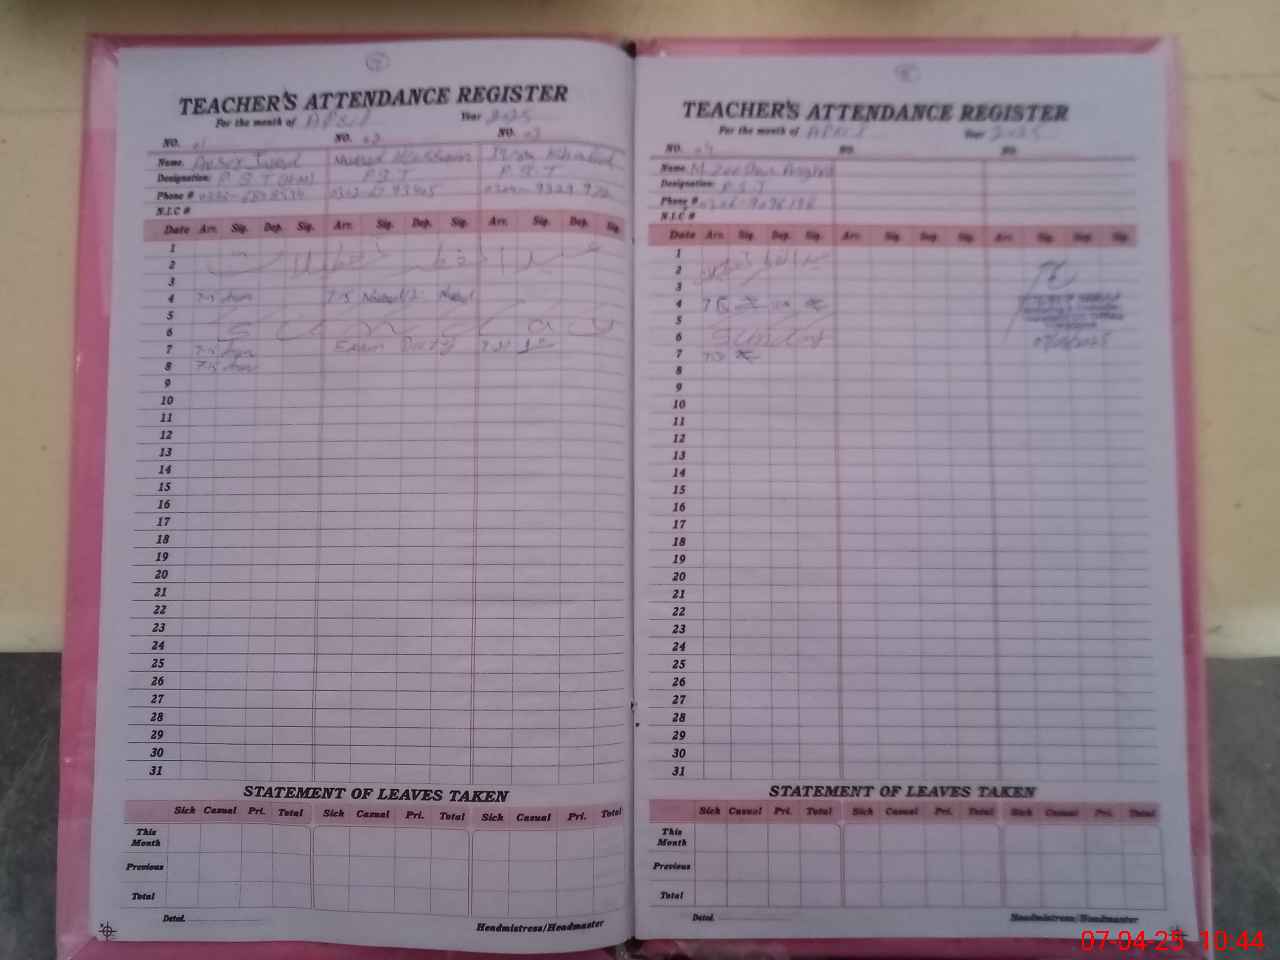 TEACHER'S ATTENDANCE REGISTER
For the month of APRIL Year 2025
NO. 01 NO. 02 NO. 03
Name.
Designation: P.S.T P.S.T P.S.T
Phone #
N.I.C #
Date Arr. Sig. Dep. Sig. Arr. Sig. Dep. Sig. Arr. Sig. Dep. Sig.
1
2
3
4 7-15 7-15
5
6 Sunday
7 7-15 Exam Duty
8 7-15
9
10
11
12
13
14
15
16
17
18
19
20
21
22
23
24
25
26
27
28
29
30
31
STATEMENT OF LEAVES TAKEN
Sick Casual Pri. Total Sick Casual Pri. Total Sick Casual Pri. Total
This Month
Previous
Total
Dated.
Headmistress/Headmaster
TEACHER'S ATTENDANCE REGISTER
For the month of APRIL Year 2025
NO. 04 NO. NO.
Name.
Designation: P.S.T
Phone #
N.I.C #
Date Arr. Sig. Dep. Sig. Arr. Sig. Dep. Sig. Arr. Sig. Dep. Sig.
1
2
3
4
5
6
7
8
9
10
11
12
13
14
15
16
17
18
19
20
21
22
23
24
25
26
27
28
29
30
31
STATEMENT OF LEAVES TAKEN
Sick Casual Pri. Total Sick Casual Pri. Total Sick Casual Pri. Total
This Month
Previous
Total
Dated.
Headmistress/Headmaster
07-04-25 10:44